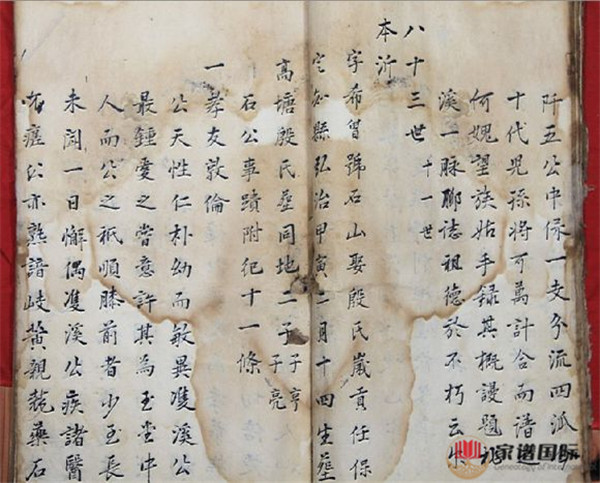 阡五公中保一支分流四派
十代兒孫將可萬計合而譜
何媿望族姑手録其概謾題
溪一脉聊誌祖德於不朽云
八十三世 十一世
本沂
字希曾號石山娶殷氏歲貢任保
定縣弘治甲寅二月十四生塟
高塘殷氏塟同地二子 子亨 子亮
石公事蹟附紀十一條
一孝友敦倫
公天性仁朴幼而敏異溪公
最鍾愛之嘗意許其為玉堂中
人而公之祇順膝前者少至長
未聞一日懈偶溪公疾諸醫
公亦熟諳岐黄親藥石
家谱国际
Genealogy of Internat